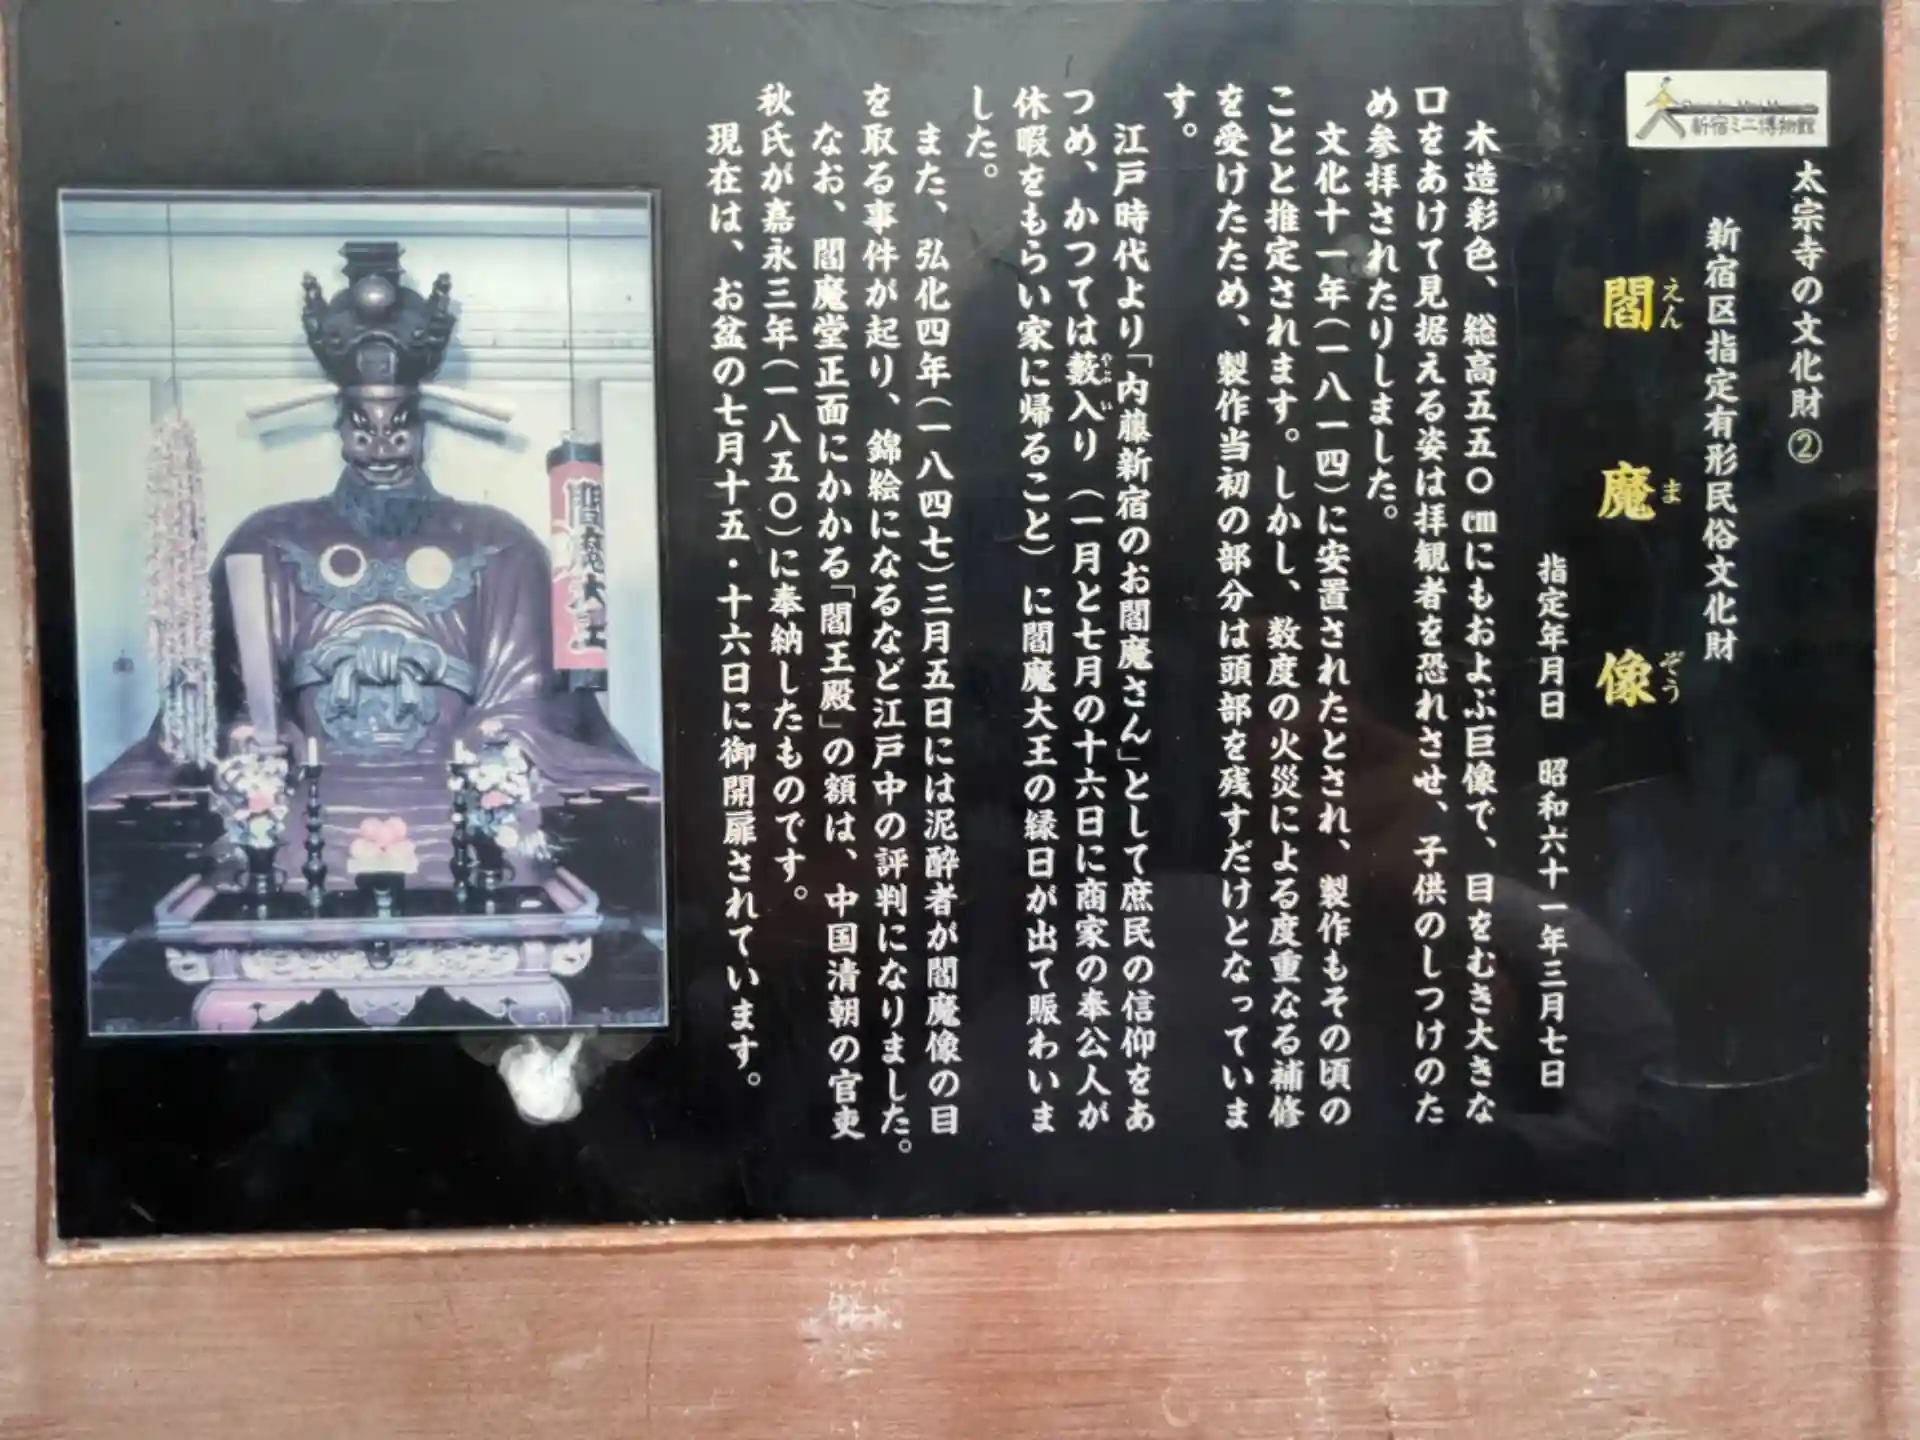 新宿ミニ博物館
太宗寺の文化財②
新宿区指定有形民俗文化財
閻魔像
えんまぞう
指定年月日　昭和六十一年三月七日
木造彩色、総高五五〇㎝にもおよぶ巨像で、目をむき大きな
口をあけて見据える姿は拝観者を恐れさせ、子供のしつけのた
め参拝されたりしました。
文化十一年(一八一四)に安置されたとされ、製作もその頃の
ことと推定されます。しかし、数度の火災による度重なる補修
を受けたため、製作当初の部分は頭部を残すだけとなっていま
す。
江戸時代より「内藤新宿のお閻魔さん」として庶民の信仰をあ
つめ、かつては藪入り（一月と七月の十六日に商家の奉公人が
やぶい
休暇をもらい家に帰ること）に閻魔大王の縁日が出て賑わいま
した。
また、弘化四年(一八四七)三月五日には泥酔者が閻魔像の目
を取る事件が起り、錦絵になるなど江戸中の評判になりました。
なお、閻魔堂正面にかかる「閻王殿」の額は、中国清朝の官吏
秋氏が嘉永三年(一八五〇)に奉納したものです。
現在は、お盆の七月十五・十六日に御開扉されています。
閻魔大王